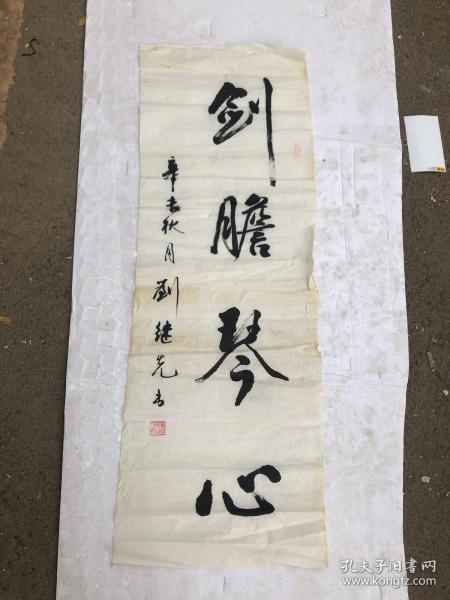 剑胆琴心
辛未秋月刘继先书
孔夫子旧书网
www.kongfz.com